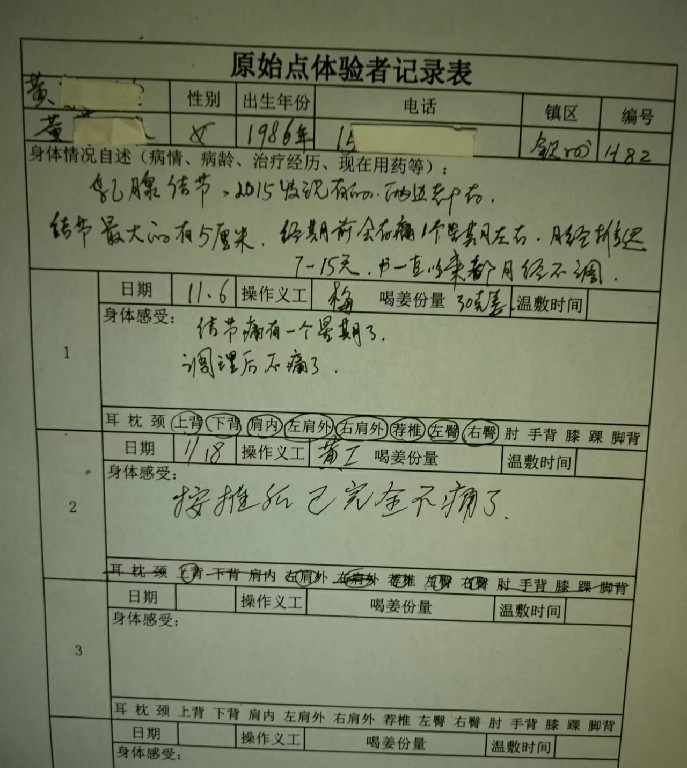 原始点体验者记录表
黄 性别 出生年份 电话 镇区 编号
黄 女 1986年 15 H82
身体情况自述（病情、病龄、治疗经历、现在用药等）：
乳腺结节、2015发现有的、两边都有。
结节最大的有5厘米．经期前会存痛1个星期左右．月经推迟
7-15天．一直以来都月经不调．
1
日期 11.6 操作义工 梅 喝姜份量 30克姜 温敷时间
身体感受：
结节痛有一个星期了．
调理后不痛了．
耳 枕 颈 上背 下背 肩内 左肩外 右肩外 荐椎 左臀 右臀 肘 手背 膝 踝 脚背
2
日期 11.18 操作义工 黄 喝姜份量 温敷时间
身体感受：
按推后已完全不痛了．
耳 枕 颈 上背 下背 肩内 左肩外 右肩外 荐椎 左臀 右臀 肘 手背 膝 踝 脚背
3
日期 操作义工 喝姜份量 温敷时间
身体感受：
耳 枕 颈 上背 下背 肩内 左肩外 右肩外 荐椎 左臀 右臀 肘 手背 膝 踝 脚背
日期 操作义工 喝姜份量 温敷时间
身体感受：